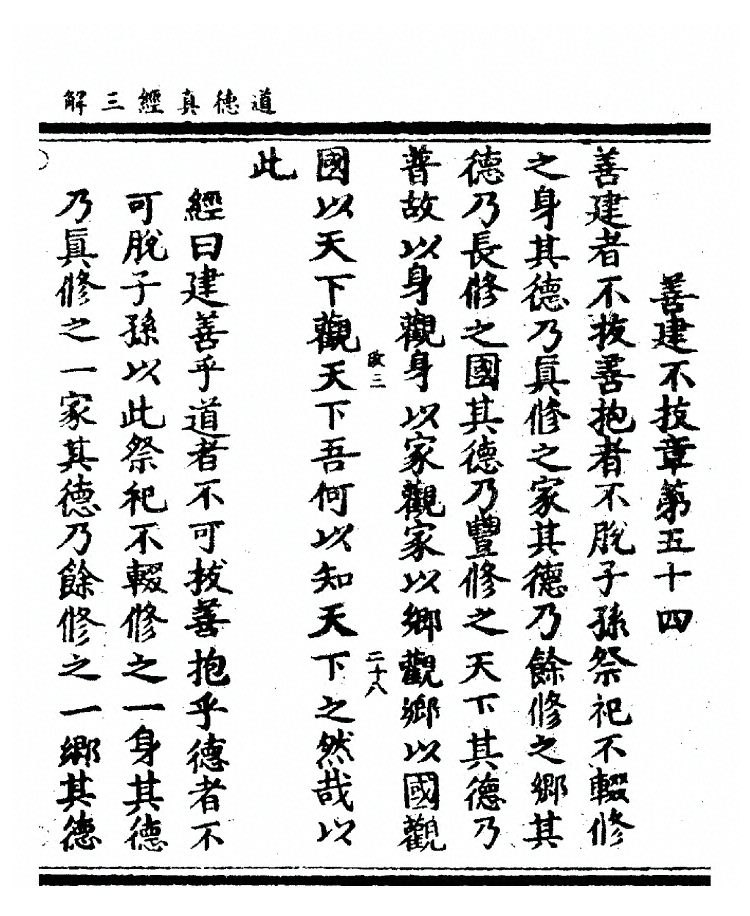 道德真經三解
善建不拔章第五十四
善建者不拔善抱者不脫子孫祭祀不輟修
之身其德乃眞修之家其德乃餘修之鄉其
德乃長修之國其德乃豐修之天下其德乃
普故以身觀身以家觀家以鄉觀鄉以國觀
政三
二十八
國以天下觀天下吾何以知天下之然哉以
此
經曰建善乎道者不可拔善抱乎德者不
可脫子孫以此祭祀不輟修之一身其德
乃眞修之一家其德乃餘修之一鄉其德